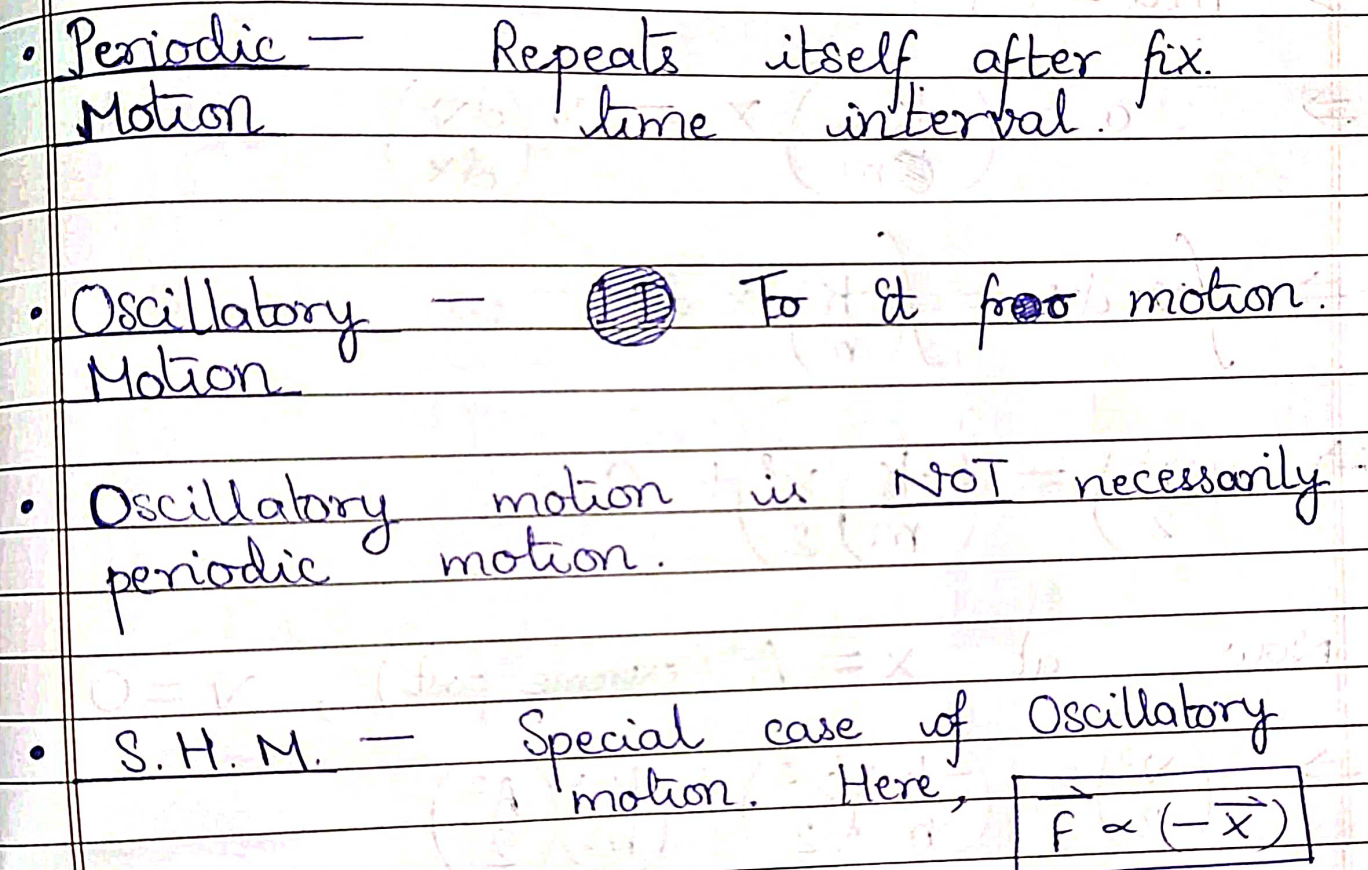 • Periodic — Repeats itself after fix.
Motion time interval.
• Oscillatory — To & fro motion.
Motion
• Oscillatory motion is NOT necessarily
periodic motion.
• S.H.M. — Special case of Oscillatory
motion. Here, F⃗ ∝ (−x⃗)